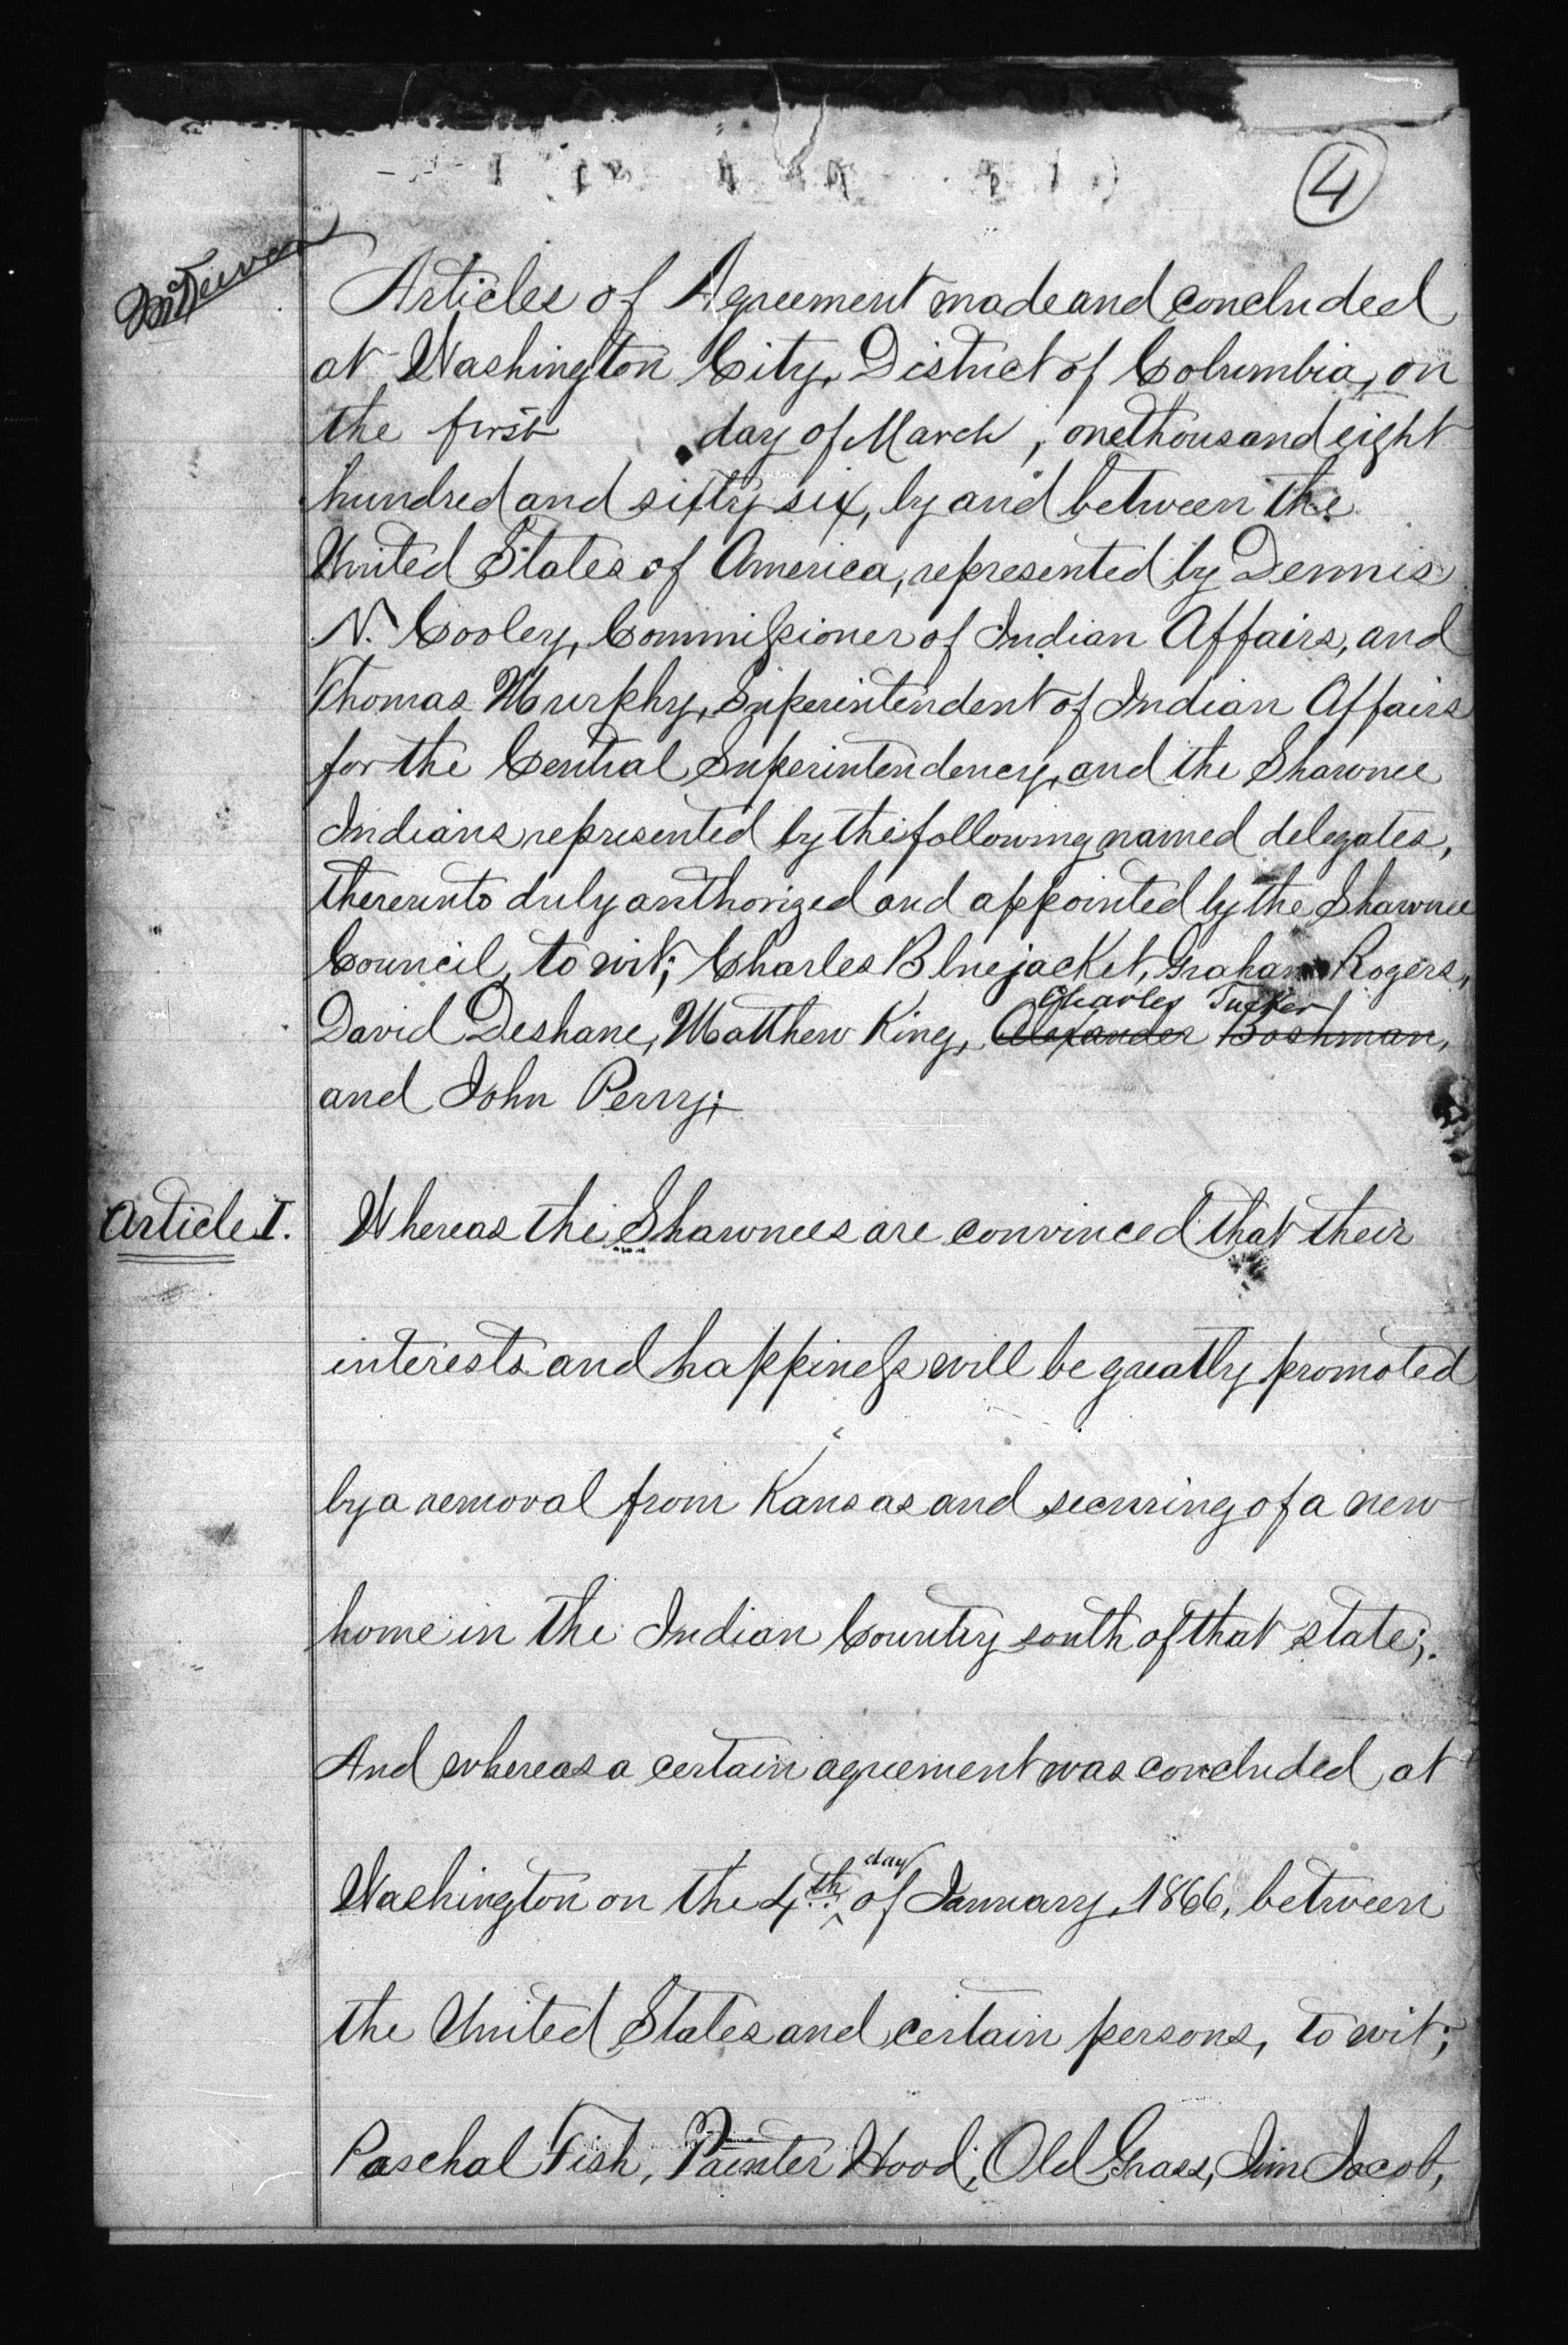 4
Articles of Agreement made and concluded
at Washington City, District of Columbia, on
the first day of March, one thousand eight
hundred and sixty six, by and between the
United States of America, represented by Dennis
N. Cooley, Commissioner of Indian Affairs, and
Thomas Murphy, Superintendent of Indian Affairs
for the Central Superintendency, and the Shawnee
Indians represented by the following named delegates,
thereunto duly authorized and appointed by the Shawnee
Council, to wit; Charles Bluejacket, Graham Rogers,
Charles Tucker
David Deshane, Matthew King, Alexander Boshman,
and John Perry;
Article I. Whereas the Shawnees are convinced that their
interests and happiness will be greatly promoted
by a removal from Kansas and securing of a new
home in the Indian Country south of that state;
And whereas a certain agreement was concluded at
day
Washington on the 4th of January, 1866, between
the United States and certain persons, to wit;
Paschal Fish, Painter Hood, Old Grass, Jim Jacob,